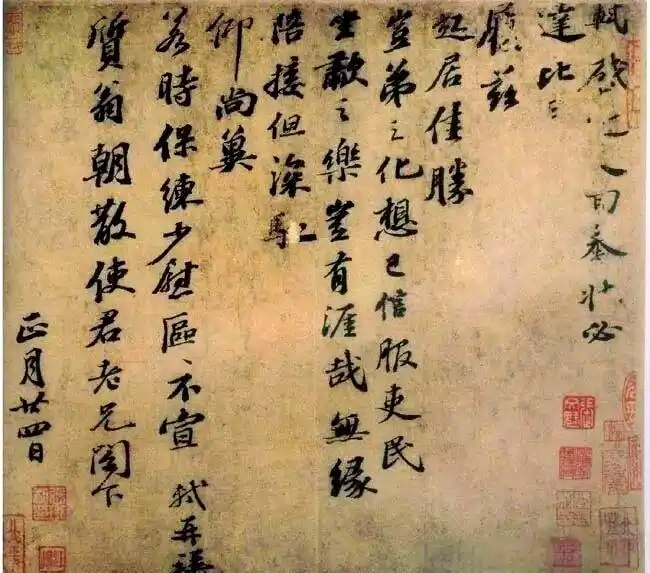 軾啟近人回奉狀必
達比日
履茲
起居佳勝
豈弟之化想已信服吏民
坐歗之樂豈有涯哉無緣
陪接但深馳
仰尚冀
若時保練少慰區〻不宣 軾再拜
質翁朝散使君老兄閣下
正月廿四日